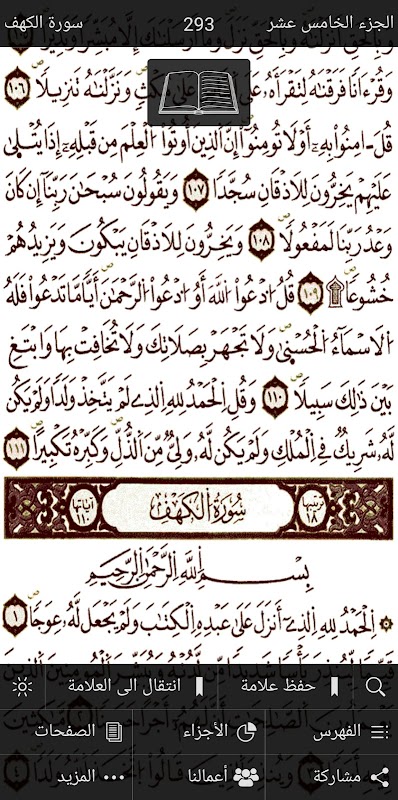 الجزء الخامس عشر 293 سورة الكهف
وَقُرْءَانًا فَرَقْنَٰهُ لِتَقْرَأَهُۥ عَلَى مُكْثٍ وَنَزَّلْنَٰهُ تَنزِيلًا ١٠٦
قُلَ ءَامِنُوا۟ بِهِۦٓ أَوْ لَا تُومِنُوٓا۟ إِنَّ ٱلذِينَ أُوتُوا۟ ٱلْعِلْمَ مِن قَبْلِهِۦٓ إِذَا يُتْلَىٰ
عَلَيْهِمْ يَخِرُّونَ لِلَاذْقَانِ سُجَّدًا ١٠٧ وَيَقُولُونَ سُبْحَٰنَ رَبِّنَآ إِن كَانَ
وَعْدُ رَبِّنَا لَمَفْعُولًا ١٠٨ وَيَخِرُّونَ لِلَاذْقَانِ يَبْكُونَ وَيَزِيدُهُمْ
خُشُوعًا ١٠٩ قُلُ ٱدْعُوا۟ ٱللَّهَ أَوُ ٱدْعُوا۟ ٱلرَّحْمَٰنَ أَيًّا مَّا تَدْعُوا۟ فَلَهُ
ٱلَاسْمَآءُ ٱلْحُسْنَىٰ وَلَا تَجْهَرْ بِصَلَاتِكَ وَلَا تُخَافِتْ بِهَا وَابْتَغِ
بَيْنَ ذَٰلِكَ سَبِيلًا ١١٠ وَقُلِ ٱلْحَمْدُ لِلهِ ٱلذِے لَمْ يَتَّخِذْ وَلَدًا وَلَمْ يَكُن
لَّهُۥ شَرِيكٌ فِے ٱلْمُلْكِ وَلَمْ يَكُن لَّهُۥ وَلِيٌّ مِّنَ ٱلذُّلِّ وَكَبِّرْهُ تَكْبِيرًا ١١١
ترتيبها ١٨ سُورَةُ ٱلْكَهْفِ آياتها ١١٠
بِسْمِ ٱللَّهِ ٱلرَّحْمَٰنِ ٱلرَّحِيمِ
ٱلْحَمْدُ لِلهِ ٱلذِےٓ أَنزَلَ عَلَىٰ عَبْدِهِ ٱلْكِتَٰبَ وَلَمْ يَجْعَل لَّهُۥ عِوَجًا ١
حفظ علامة انتقال الى العلامة
الفهرس الأجزاء الصفحات
مشاركة أعمالنا المزيد